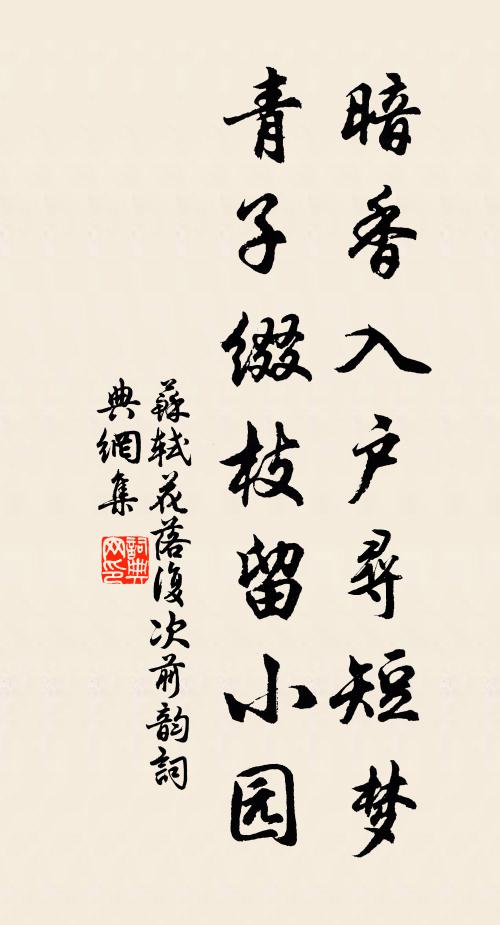 暗香入户尋短梦
青子缀枝留小园
蘇軾花落復次前韵詞
典網集
詞典网印